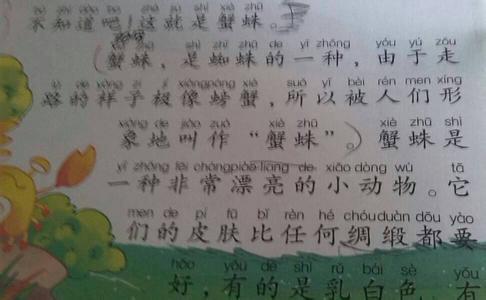 bù zhī dào ba zhè jiù shì xiè zhū
不知道吧！这就是蟹蛛。
zhū shì zhī zhū de yì zhǒng yóu yú zǒu
蟹蛛，是蜘蛛的一种，由于走
lù de yàng zi jí xiàng páng xiè suǒ yǐ bèi rén men xíng
路的样子极像螃蟹，所以被人们形
xiàng de jiào zuò xiè zhū xiè zhū shì
象地叫作“蟹蛛”。蟹蛛是
yī zhǒng fēi cháng piào liang de xiǎo dòng wù tā
一种非常漂亮的小动物。它
men de pí fū bǐ rèn hé chóu duàn dōu yào
们的皮肤比任何绸缎都要
hǎo yǒu de shì rǔ bái sè yǒu
好，有的是乳白色，有